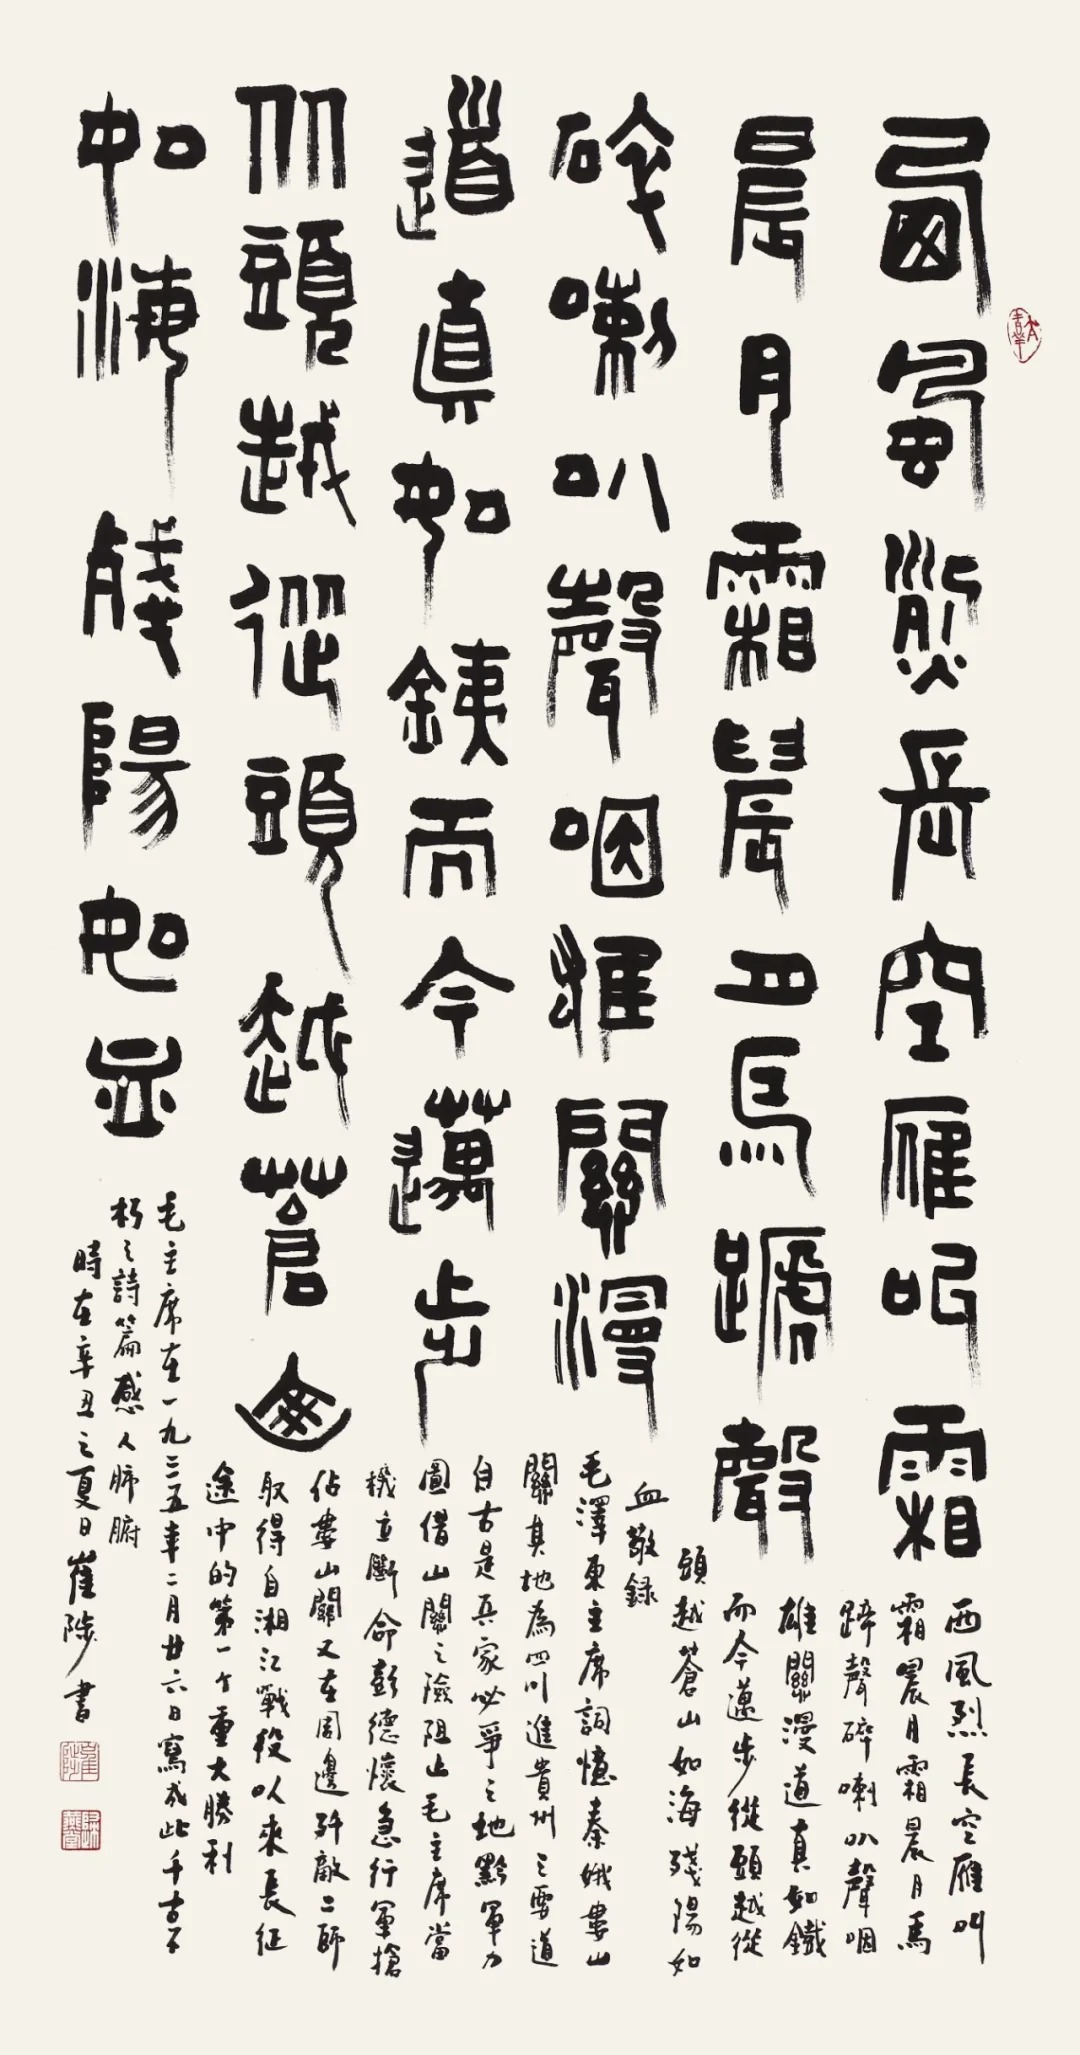 西風烈長空雁叫霜
晨月霜晨月馬蹄聲
碎喇叭聲咽雄關漫
道真如鐵而今邁步
從頭越從頭越蒼山
如海殘陽如血
西風烈長空雁叫
霜晨月霜晨月馬
蹄聲碎喇叭聲咽
雄關漫道真如鐵
而今邁步從頭越從
頭越蒼山如海殘陽如
血敬録
毛澤東主席詞憶秦娥婁山
關其地為四川進貴州之要道
自古是兵家必爭之地黔軍力
圖借山關之險阻止毛主席當
機立斷命彭德懷急行軍搶
佔婁山關又在周邊歼敵二師
取得自湘江戰役以來長征
途中的第一个重大勝利
毛主席在一九三五年二月廿六日寫成此千古不
朽之詩篇感人肺腑
時在辛丑之夏日崔陟書
崔陟